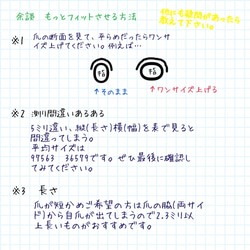 余談 もっとフィットさせる方法
他にも疑問があったら
教えて下さい。
※1 爪の断面を見て、平らめだったらワンサ
イズ上げてください。例えば…
幅 幅
↑そのまま ↑ワンサイズ上げる
※2 測り間違いあるある
5ミリ違い、縦(長さ)横(幅)を表で見ると
間違ってしまう。
平均サイズは
97563 36579です。ぜひ最後に確認し
てみてください。
※3 長さ
爪が短かめご希望の方は爪の脇(両サイ
ド)から自爪が出てしまうので2.3ミリ以
上長いものがおすすめです。